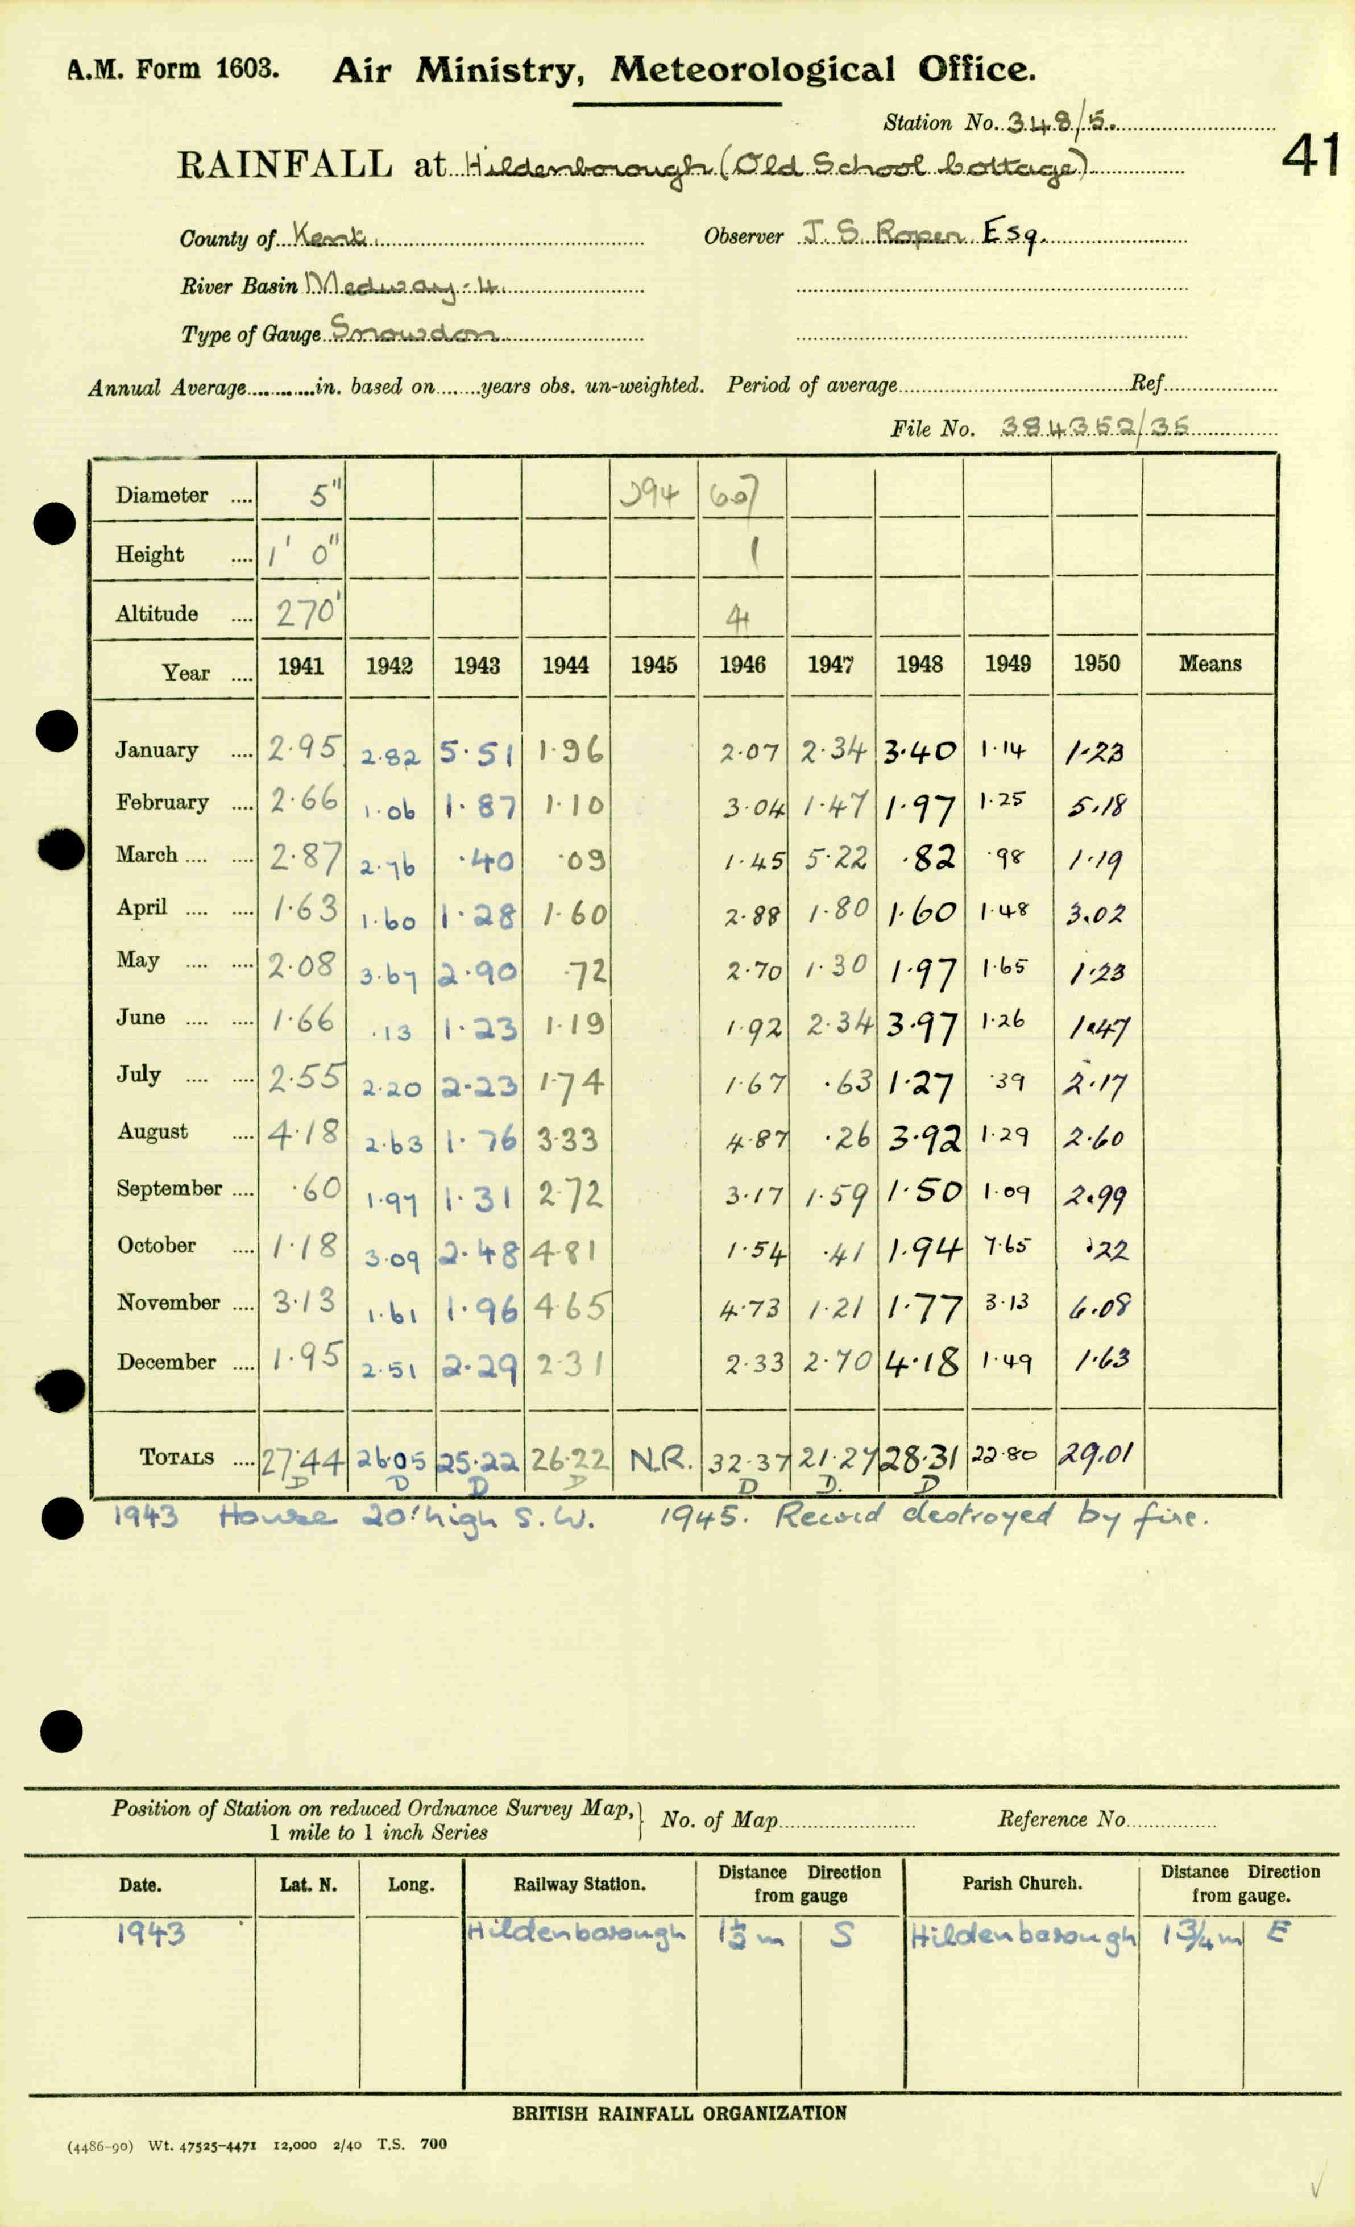 A.M. Form 1603. Air Ministry, Meteorological Office.
Station No. 348/5.
41
RAINFALL at Hildenborough (Old School Cottage)
County of Kent. Observer J. S. Roper Esq.
River Basin Medway - 4.
Type of Gauge Snowdon
Annual Average............in. based on.......years obs. un-weighted. Period of average............Ref............
File No. 384352/35
Diameter .... 5" 394 607
Height .... 1' 0" 1
Altitude .... 270' 4
Year .... 1941 1942 1943 1944 1945 1946 1947 1948 1949 1950 Means
January .... 2·95 2·82 5·51 1·96 2·07 2·34 3·40 1·14 1·23
February .... 2·66 1·06 1·87 1·10 3·04 1·47 1·97 1·25 5·18
March .... .... 2·87 2·76 ·40 ·09 1·45 5·22 ·82 ·98 1·19
April .... .... 1·63 1·60 1·28 1·60 2·88 1·80 1·60 1·48 3.02
May .... .... 2·08 3·67 2·90 ·72 2·70 1·30 1·97 1·65 1·23
June .... .... 1·66 ·13 1·23 1·19 1·92 2·34 3·97 1·26 1·47
July .... .... 2·55 2·20 2·23 1·74 1·67 ·63 1·27 ·39 2·17
August .... 4·18 2·63 1·76 3·33 4·87 ·26 3·92 1·29 2·60
September .... ·60 1·97 1·31 2·72 3·17 1·59 1·50 1·09 2.99
October .... 1·18 3·09 2·48 4·81 1·54 ·41 1·94 7·65 ·22
November .... 3·13 1·61 1·96 4·65 4·73 1·21 1·77 3·13 6·08
December .... 1·95 2·51 2·29 2·31 2·33 2·70 4·18 1·49 1·63
TOTALS .... 27·44 26·05 25·22 26·22 N.R. 32·37 21·27 28·31 22·80 29.01
D D D D D D. D
1943 House 20' high S.W. 1945. Record destroyed by fire.
Position of Station on reduced Ordnance Survey Map, } No. of Map............ Reference No............
1 mile to 1 inch Series
Date. Lat. N. Long. Railway Station. Distance Direction from gauge Parish Church. Distance Direction from gauge.
1943 Hildenborough 1½ m S Hildenborough 1¾ m E
BRITISH RAINFALL ORGANIZATION
(4486-90) Wt. 47525-4471 12,000 2/40 T.S. 700